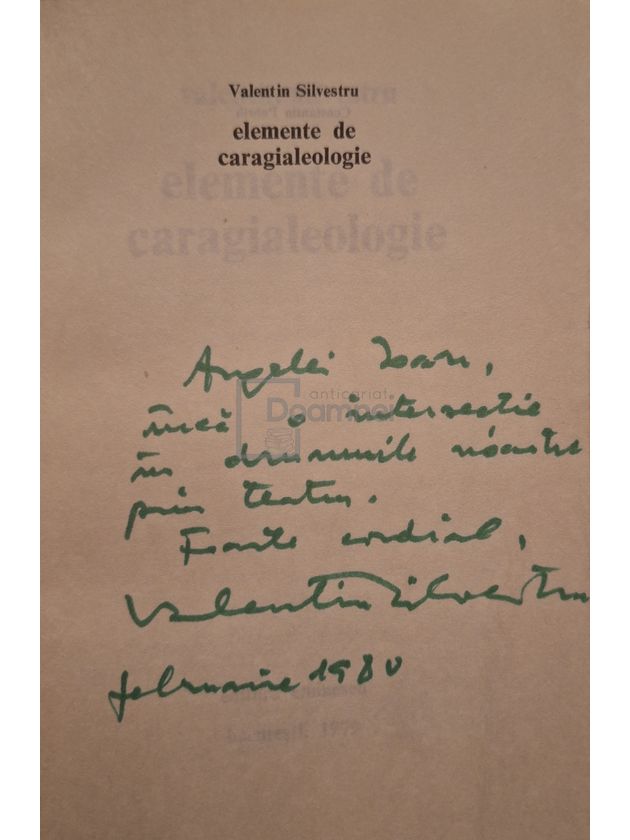 Valentin Silvestru
elemente de
caragialeologie
Angelei Ioan,
încă o intersecție
în drumurile noastre
prin teatru.
Foarte cordial,
Valentin Silvestru
februarie 1980
anticariat
Doamnei
elemente de
caragialeologie
București, 1979